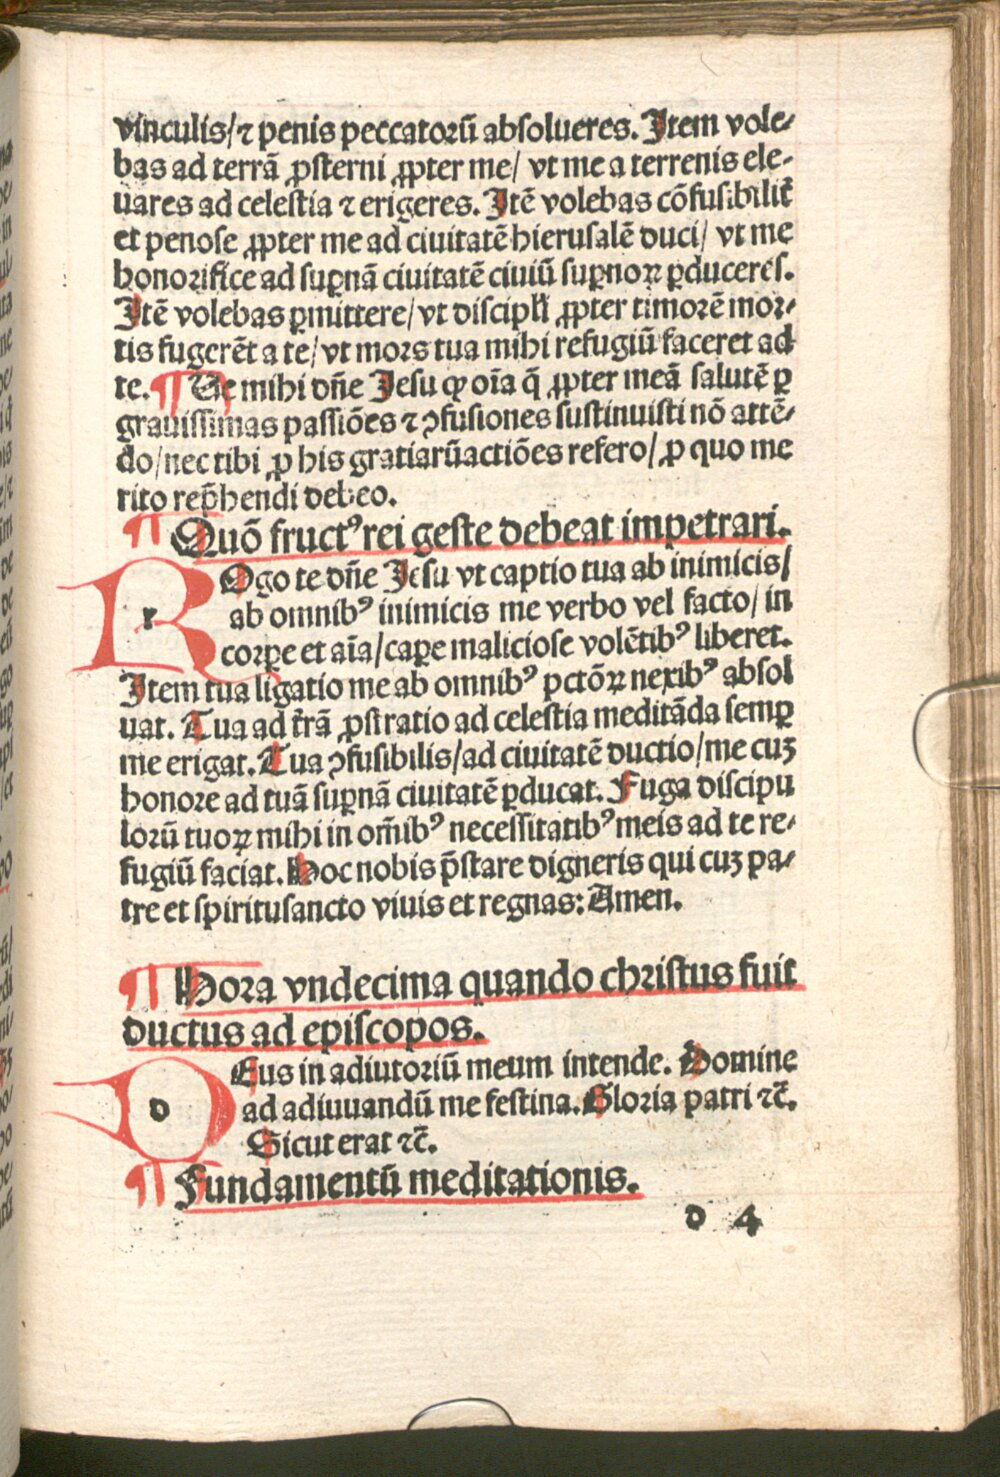 vinculis/ ⁊ penis peccatorū absolueres. Item vole⸗
bas ad terrā ꝓsterni ꝓpter me/ vt me a terrenis ele⸗
uares ad celestia ⁊ erigeres. Itē volebas cōfusibilit̄
et penose ꝓpter me ad ciuitatē hierusalē duci/ vt me
honorifice ad suꝑnā ciuitatē ciuiū suꝑnoꝝ ꝑduceres.
Itē volebas ꝑmittere/ vt discipli ꝓpter timorē mor⸗
tis fugerēt a te/ vt mors tua mihi refugiū faceret ad
te. ¶ Ue mihi dn̄e Iesu ꝙ oīa q̄ ꝓpter meā salutē ꝑ
grauissimas passiōes ⁊ ꝯfusiones sustinuisti nō attē⸗
do/ nec tibi ꝓ his gratiarūactiōes refero/ ꝓ quo me
rito rep̄hendi debeo.
¶ Quō fructꝰ rei geste debeat impetrari.
r Ogo te dn̄e Iesu vt captio tua ab inimicis/
ab omnibꝰ inimicis me verbo vel facto/ in
corꝑe et aīa/ caꝑe maliciose volētibꝰ liberet.
Item tua ligatio me ab omnibꝰ pctōꝝ nexibꝰ absol
uat. Tua ad t̄rā ꝓstratio ad celestia meditāda semꝑ
me erigat. Tua ꝯfusibilis/ ad ciuitatē ductio/ me cuꝫ
honore ad tuā suꝑnā ciuitatē ꝑducat. Fuga discipu
lorū tuoꝝ mihi in om̄ibꝰ necessitatibꝰ meis ad te re⸗
fugiū faciat. Hoc nobis p̄stare digneris qui cuꝫ pa⸗
tre et spiritusancto viuis et regnas: Amen.
¶ Hora vndecima quando christus fuit
ductus ad episcopos.
d Eus in adiutoriū meum intende. Domine
ad adiuuandū me festina. Gloria patri ⁊c̄.
Sicut erat ⁊c̄.
¶ Fundamentū meditationis.
d 4